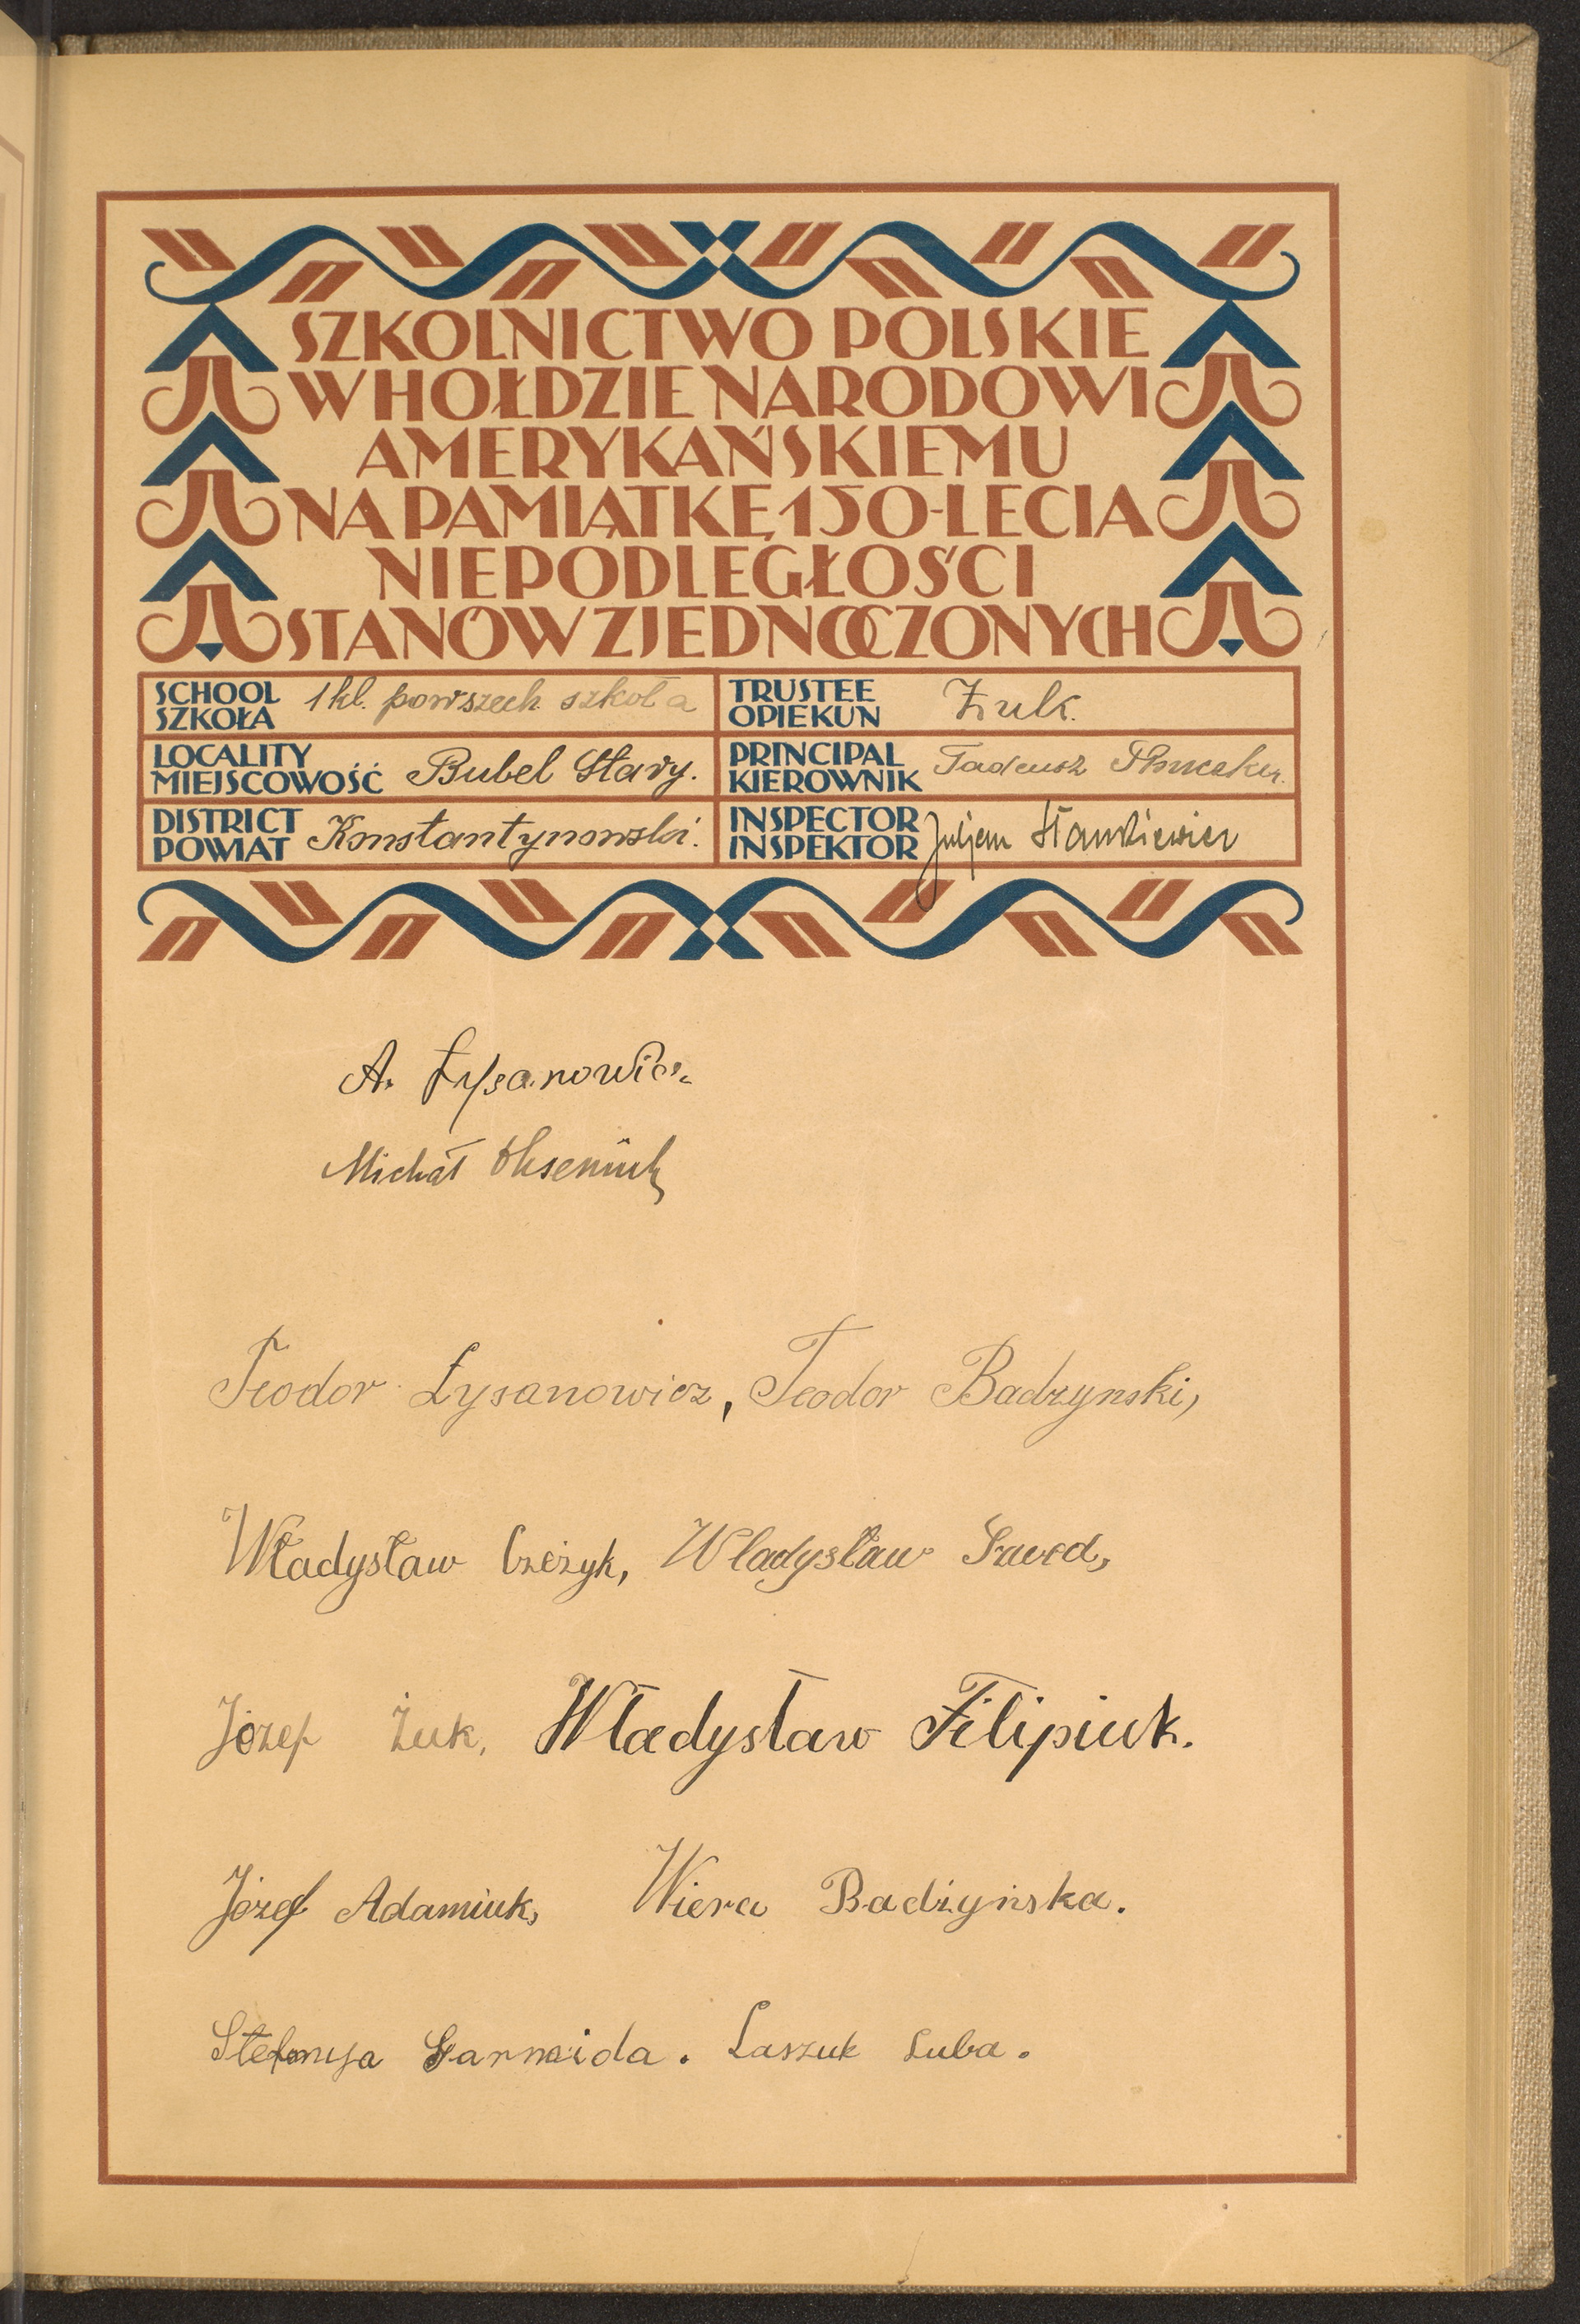 SZKOLNICTWO POLSKIE
W HOŁDZIE NARODOWI
AMERYKAŃSKIEMU
NA PAMIĄTKĘ 150-LECIA
NIEPODLEGŁOŚCI
STANÓW ZJEDNOCZONYCH
SCHOOL SZKOŁA 1 kl. powszech. szkoła
TRUSTEE OPIEKUN Żuk.
LOCALITY MIEJSCOWOŚĆ Bubel Stary.
PRINCIPAL KIEROWNIK Tadeusz
DISTRICT POWIAT Konstantynowski.
INSPECTOR INSPEKTOR Juljan Stankiewicz
A. Łysanowicz
Michał Okseniuk
Teodor Łysanowicz, Teodor Badzynski,
Władysław Czeżyk, Władysław Szwed,
Józef Żuk, Władysław Filipiuk.
Józef Adamiuk, Wiera Badżyńska.
Stefanja Garmaida. Laszuk Luba.